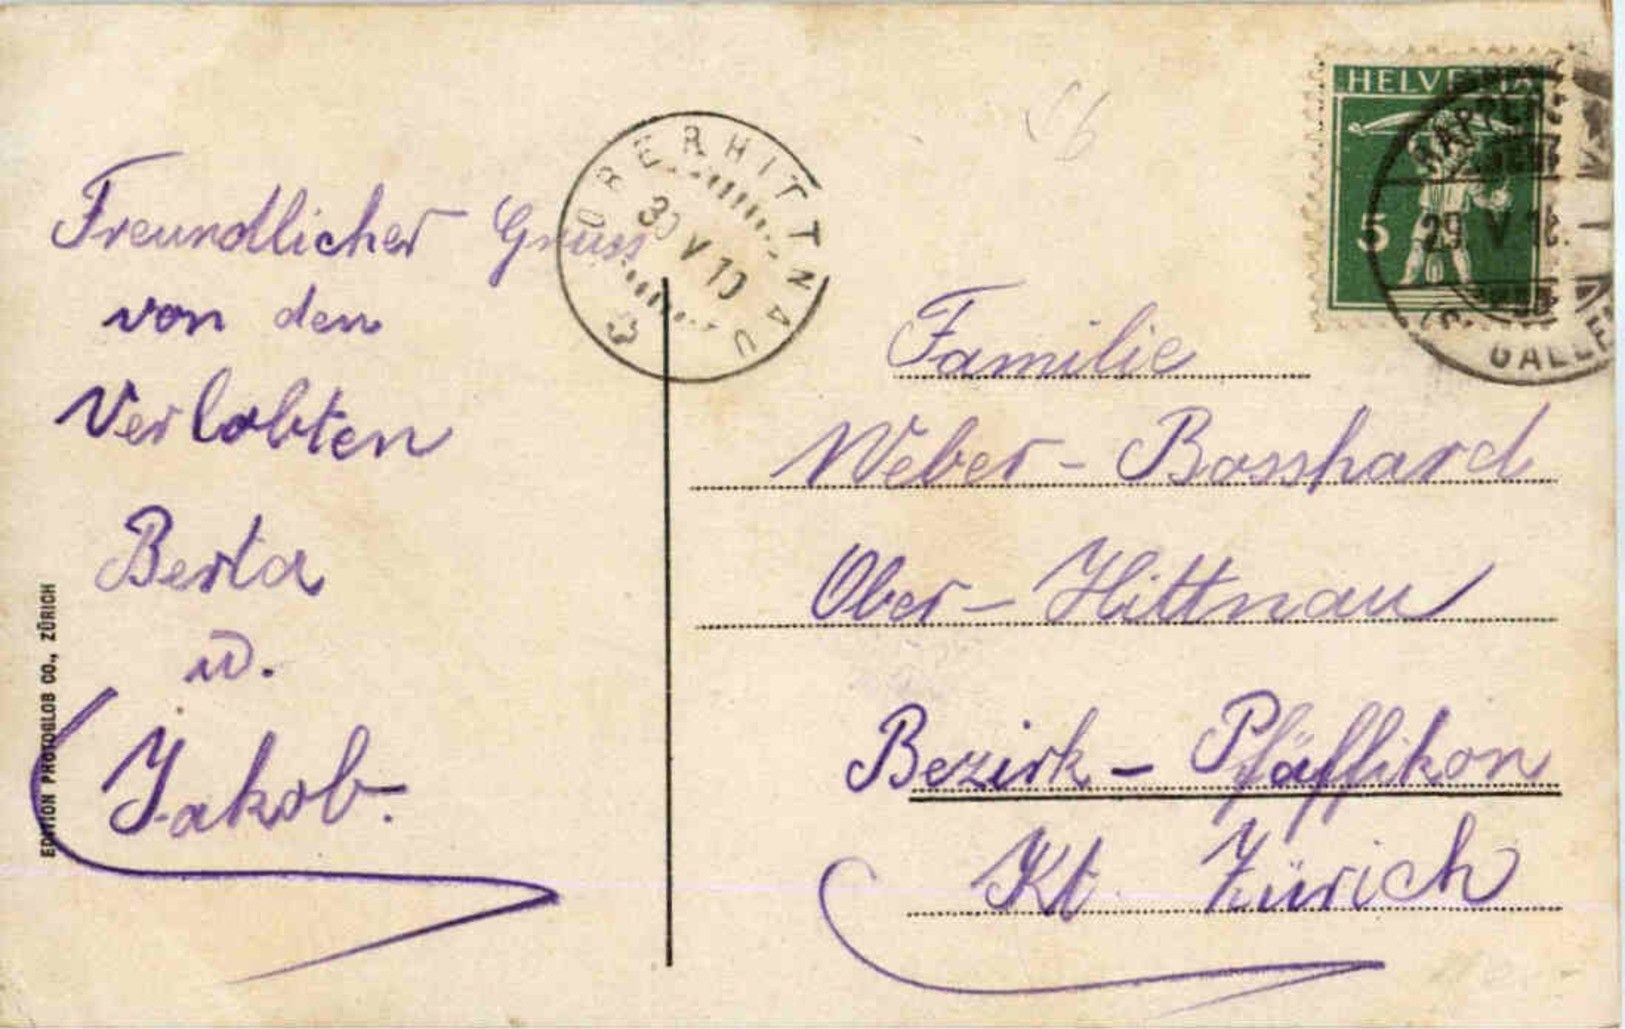 Freundlicher Gruss
von den
Verlobten
Berta
u.
Jakob.
EDITION PHOTOGLOB CO., ZÜRICH
OBERHITTNAU
30 V 10
HELVETIA
5
29 V
GALLEN
Familie
Weber - Bosshard
Ober - Hittnau
Bezirk - Pfäffikon
Kt. Zürich